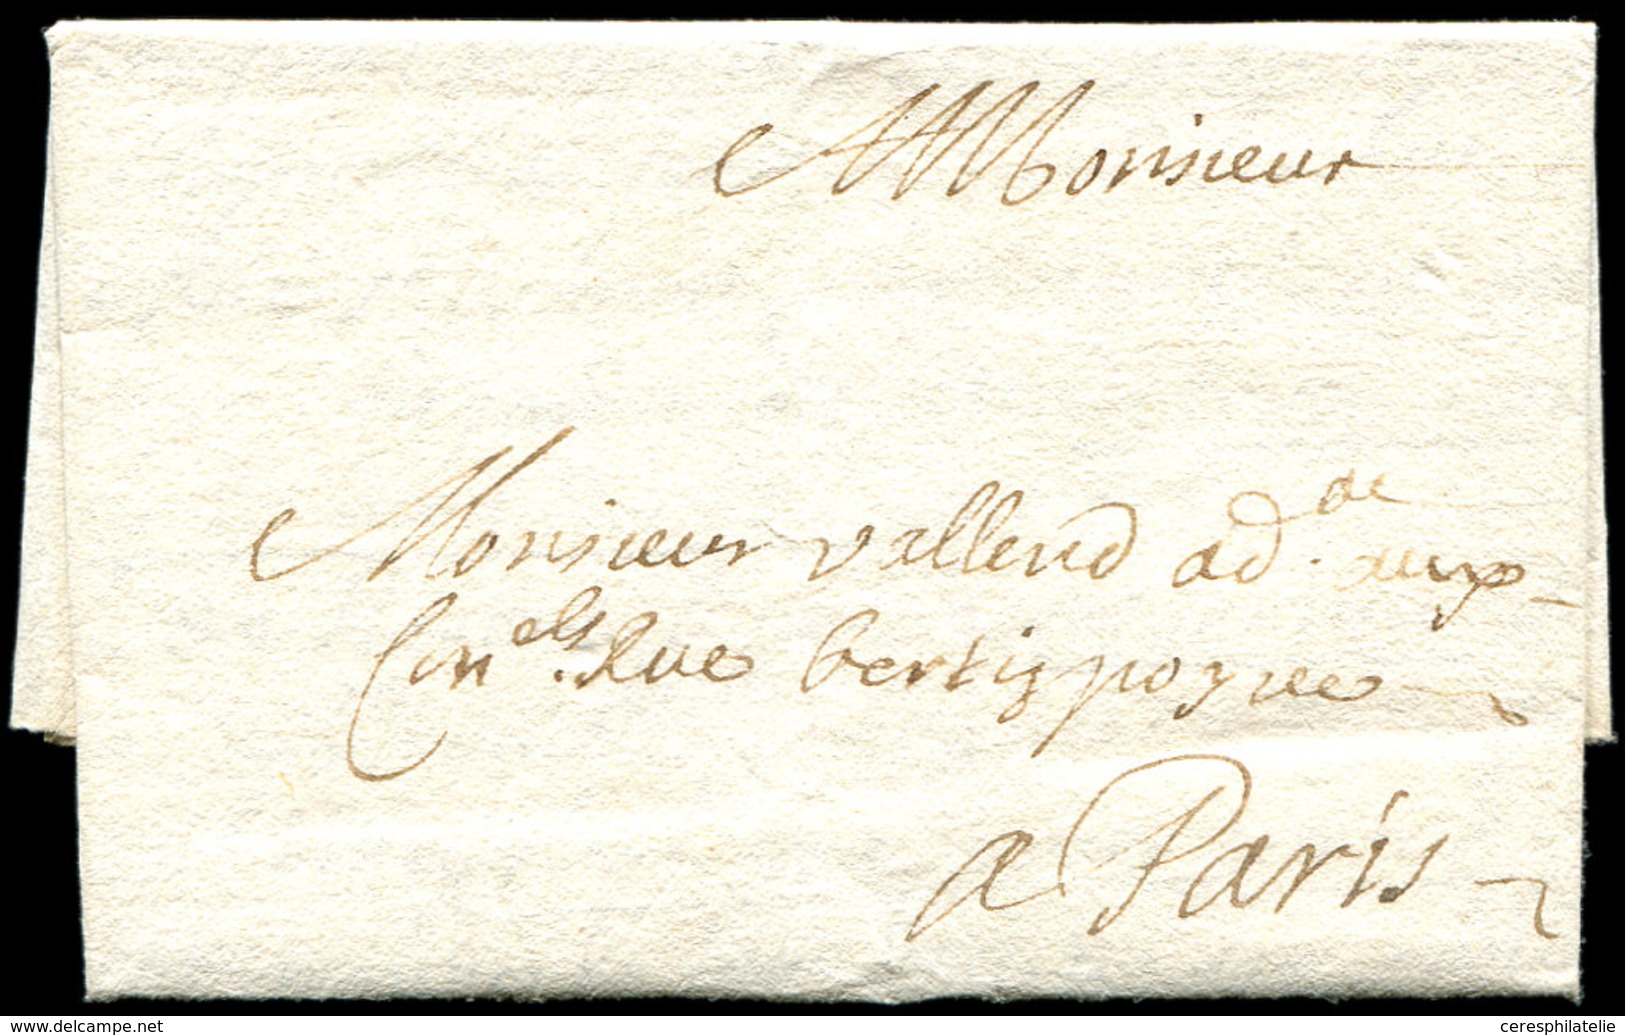 Monsieur
Monsieur vallend ad.de aux
Con.els Rue bertispoyree
a Paris
www.delcampe.net
ceresphilatelie